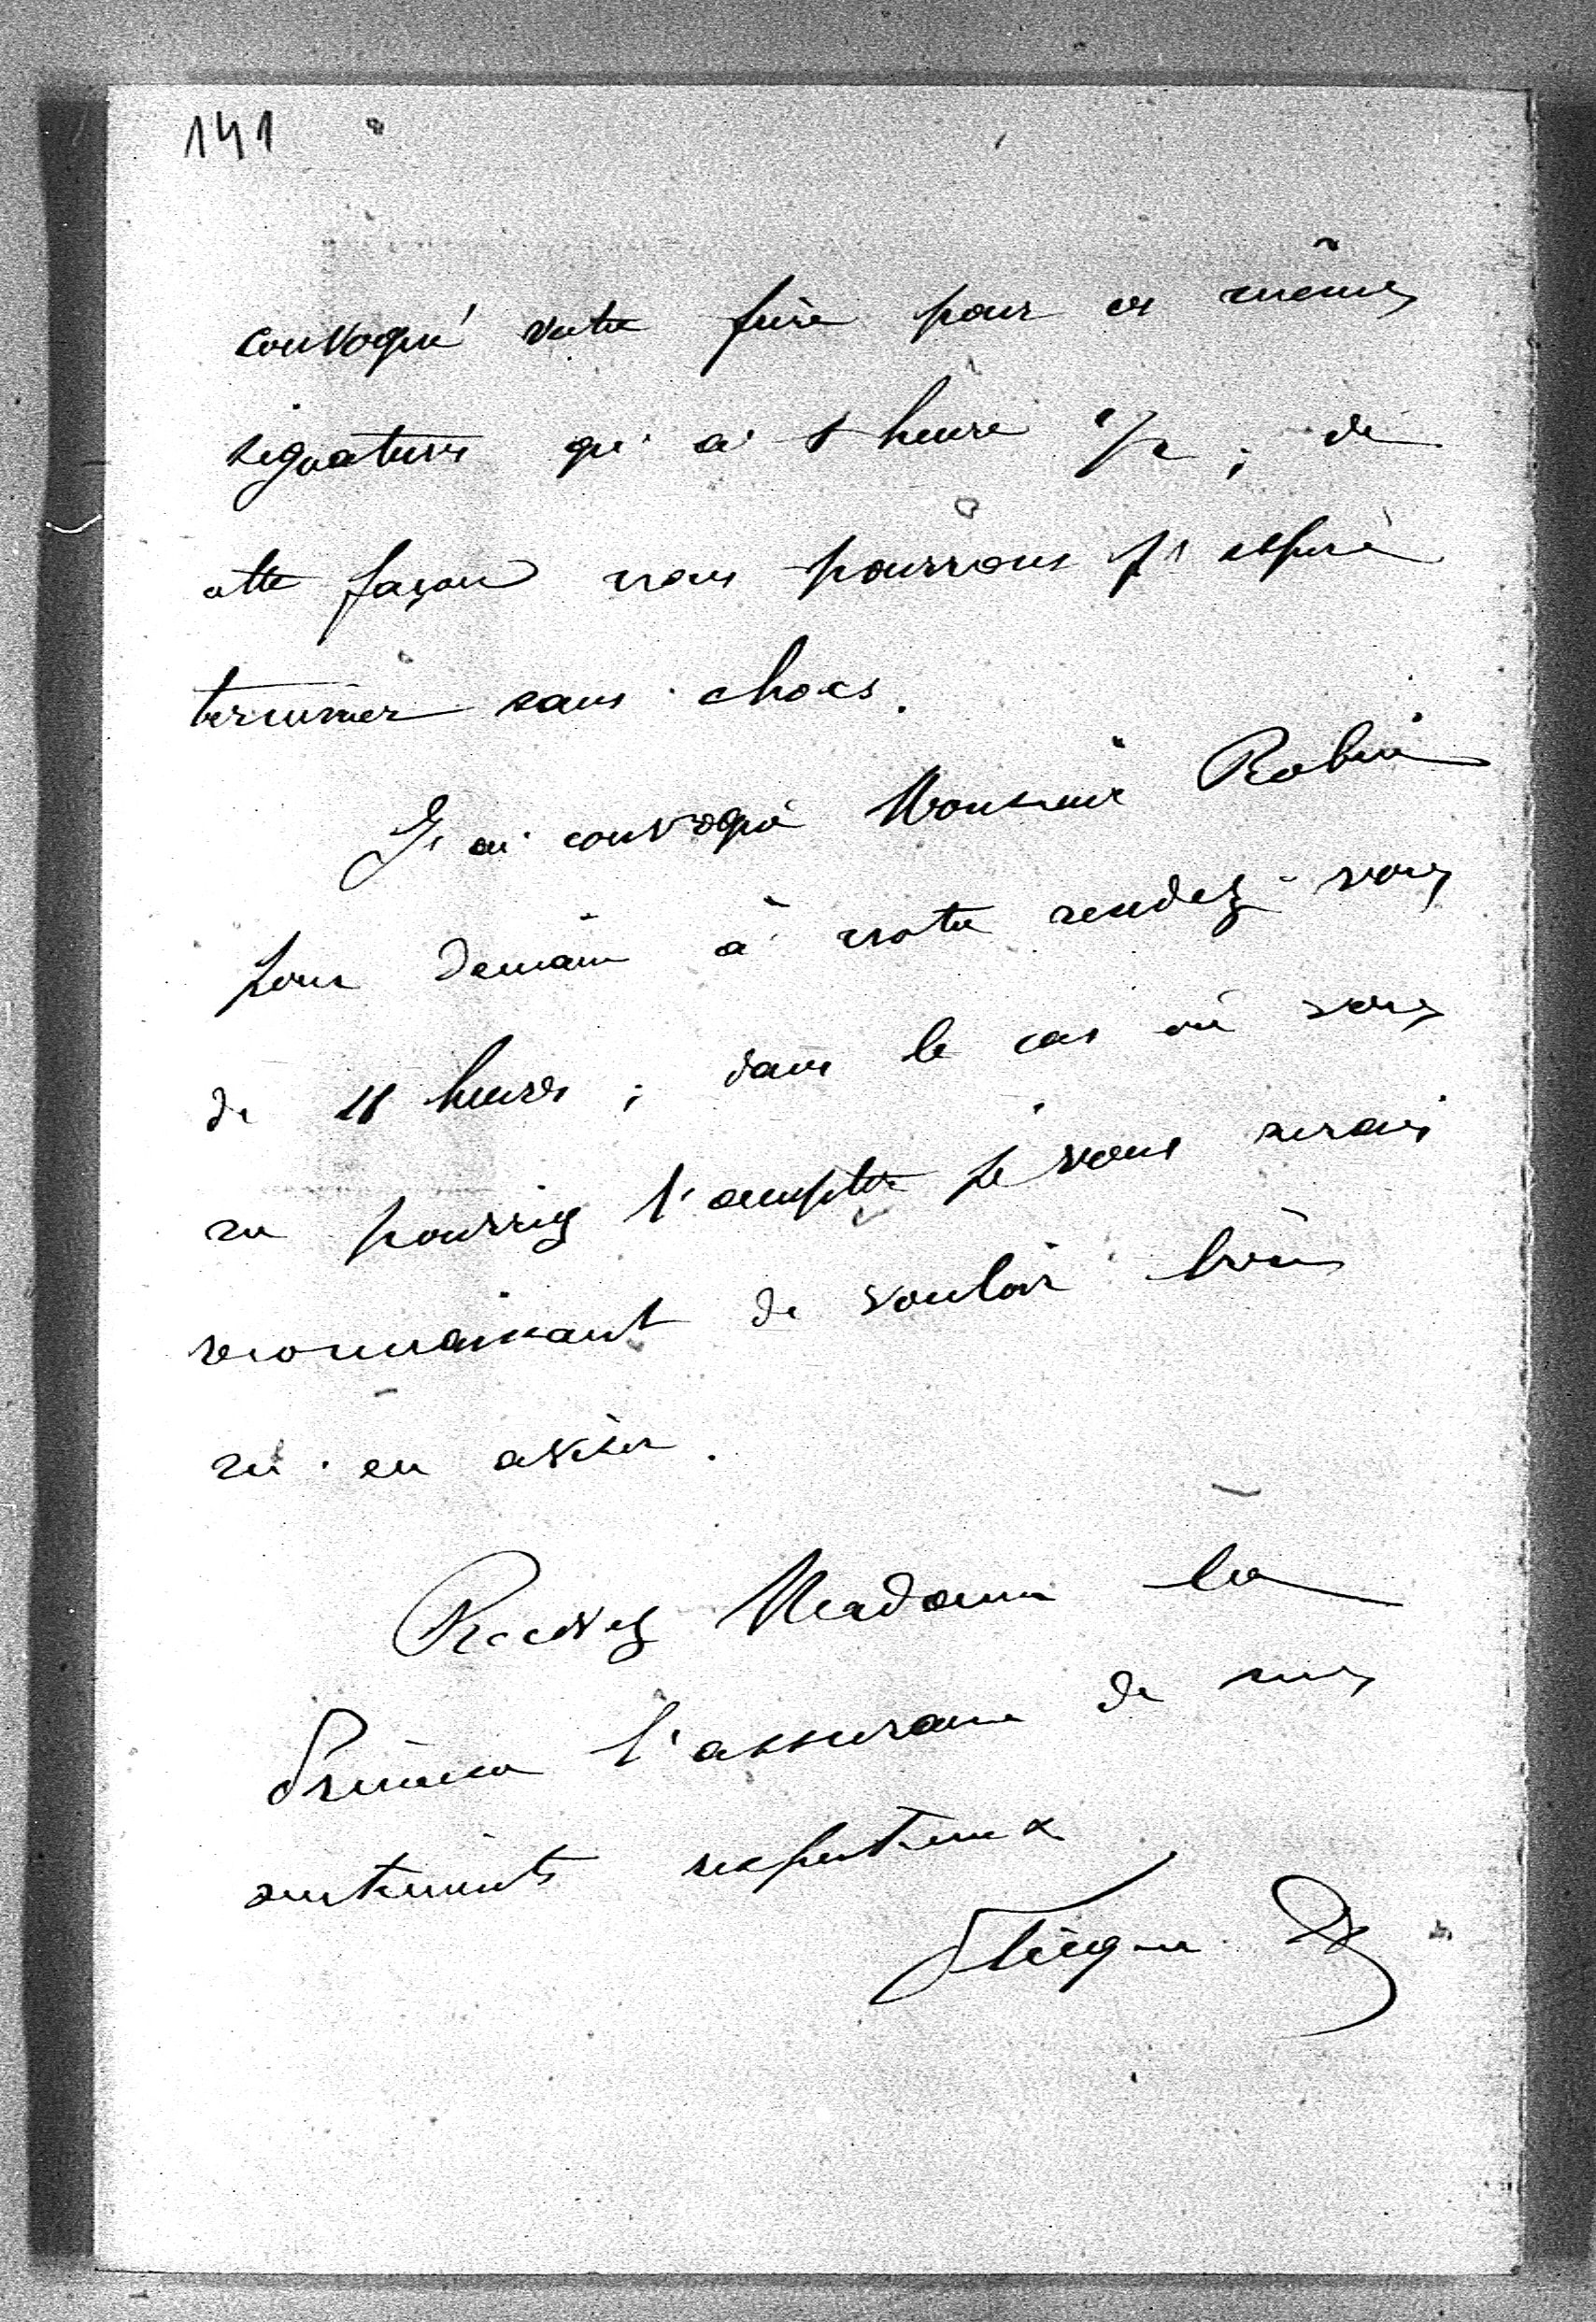 141
convoqué votre frère pour ces mêmes
signatures qu'à 1 heure 1/2 ; de
cette façon nous pourrons j'espère
terminer sans chocs.
J'ai convoqué Monsieur Robin
pour demain à notre rendez-vous
de 11 heures ; dans le cas où vous
ne pourriez l'accepter je vous serais
reconnaissant de vouloir bien
m'en aviser.
Recevez Madame la
Princesse l'assurance de mes
sentiments respectueux